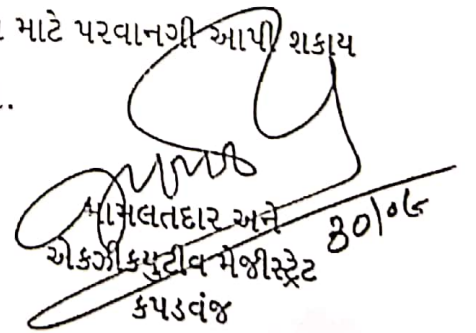 માટે પરવાનગી આપી શકાય
.
મામલતદાર અને
એકઝીકયુટીવ મેજીસ્ટ્રેટ
કપડવંજ